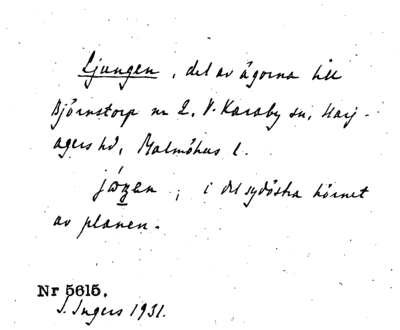 Ljungen, del av ägorna till
Björnstorp nr 2, V. Karaby sn, Harj-
agers hd, Malmöhus l.
i det sydöstra hörnet
av planen.
Nr 5615.
I. Ingers 1931.